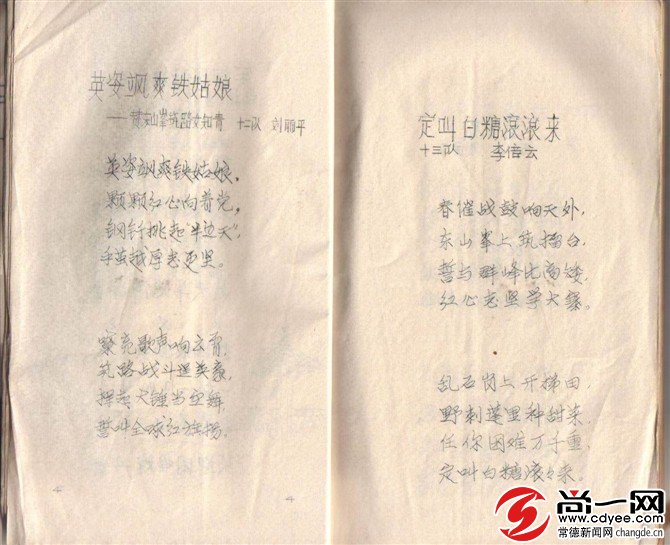 英姿飒爽铁姑娘
——赞安山峯筑路女知青 十二队 刘丽平
英姿飒爽铁姑娘，
颗颗红心向着党，
钢钎挑起"半边天"，
手茧越厚志更坚。
嘹亮歌声响云霄，
筑路战斗逞英豪，
挥 大锤当红舞
誓叫全球红旗扬。
4
4
定叫白糖滾滾来
十三队 李倍云
春催战鼓响天外，
东山峯上筑擂台，
誓与群峰比高矮，
红心志坚学大寨。
乱石岗上开梯田，
野刺蓬里种甜菜，
任你困难万千重，
定叫白糖滚々来。
尚一网
www.cdyee.com
常德新闻网 changde.cn